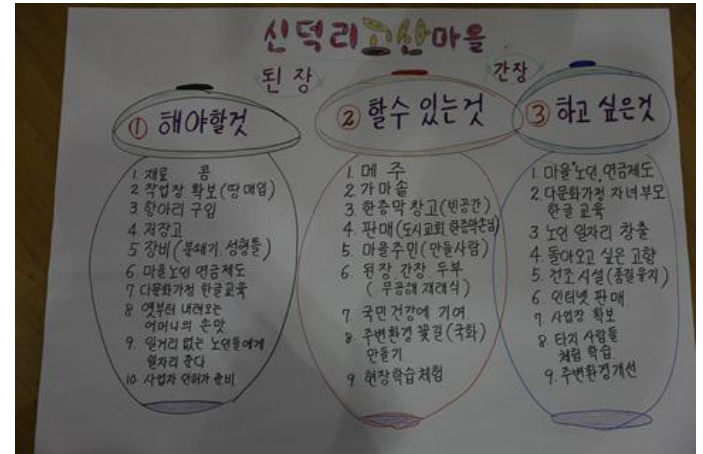 신덕리고산마을
된장
간장
① 해야할것
1. 재료 콩
2. 작업장 확보(땅매입)
3. 항아리 구입
4. 저장고
5 장비(분쇄기. 성형틀)
6. 마을노인 연금제도
7. 다문화가정 한글교육
8 옛부터 내려오는
어머니의 손맛
9. 일거리 없는 노인들에게
일자리 준다
10. 사업자 인허가 준비
② 할수 있는것
1. 메주
2. 가마솥
3. 한증막 창고(빈공간)
4. 판매(도시교회 한증막손님)
5. 마을주민(만들사람)
6. 된장 간장 두부
(무공해 재래식)
7 국민 건강에 기여
8. 주변환경 꽃길(국화)
만들기
9 현장학습체험
③ 하고 싶은것
1. 마을 노인 연금제도
2. 다문화가정 자녀부모
한글교육
3. 노인 일자리 창출
4. 돌아오고 싶은 고향
5. 건조시설(품질유지)
6 인터넷 판매
7 사업장 확보
8. 타지 사람들
체험 학습
9. 주변환경개선